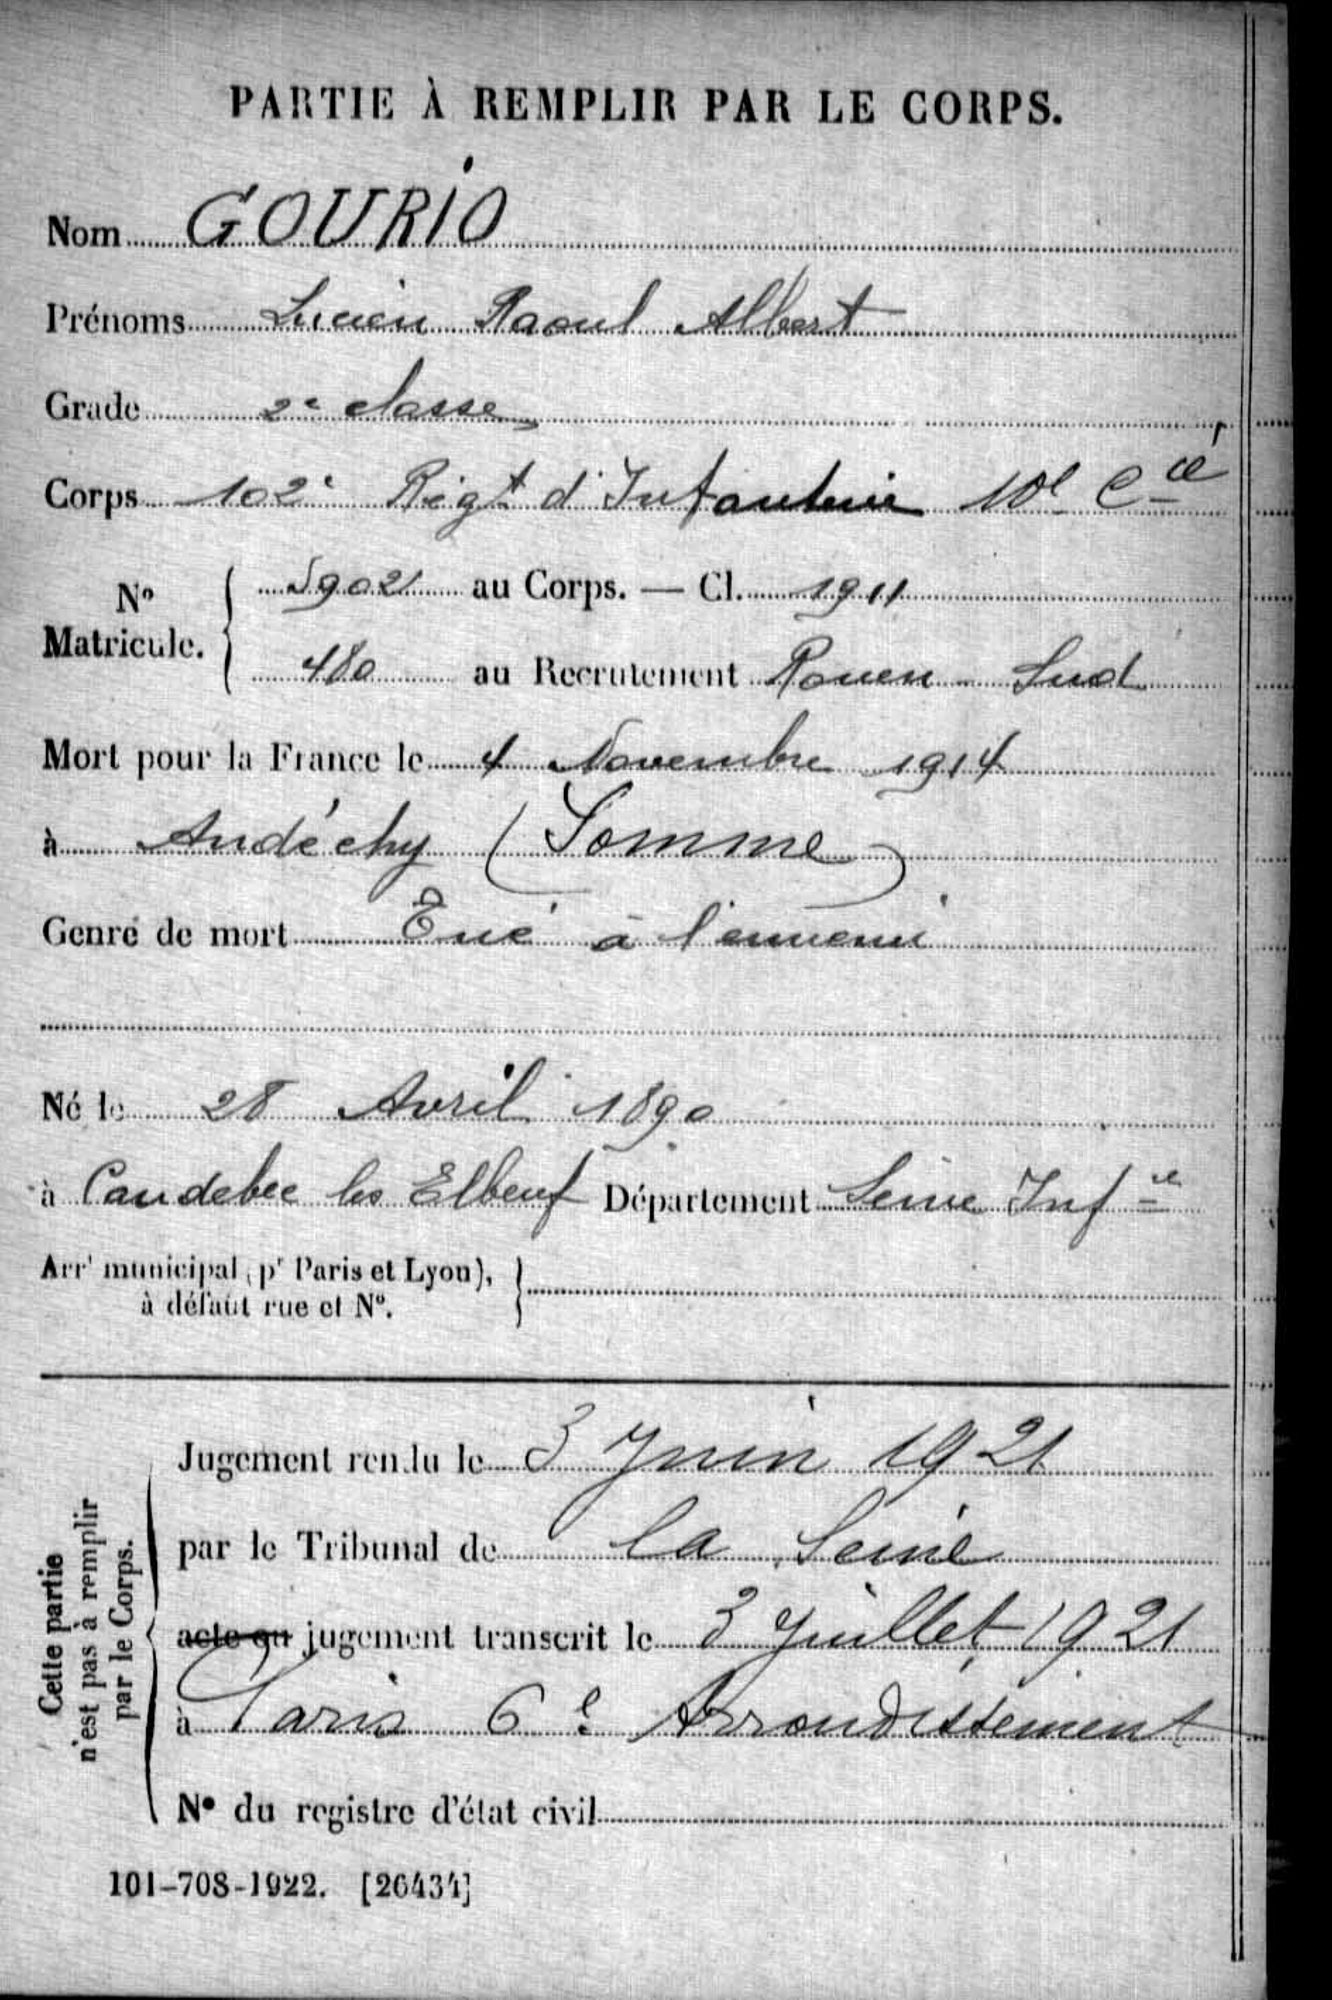 PARTIE À REMPLIR PAR LE CORPS.
Nom GOURIO
Prénoms Lucien Raoul Albert
Grade 2e classe
Corps 102e Régt d'Infanterie 10e Cie
No Matricule. { 5902 au Corps. — Cl. 1911
480 au Recrutement Rouen - Sud
Mort pour la France le 4 Novembre 1914
à Andéchy (Somme)
Genre de mort Tué à l'ennemi
Né le 28 Avril 1890
à Caudebec les Elbeuf Département Seine Infre
Arrt municipal (pr Paris et Lyon), }
à défaut rue et No.
Cette partie n'est pas à remplir par le Corps.
Jugement rendu le 3 Juin 1921
par le Tribunal de la Seine
acte ou jugement transcrit le 3 Juillet 1921
à Paris 6e Arrondissement
No du registre d'état civil
101-708-1922. [26434]